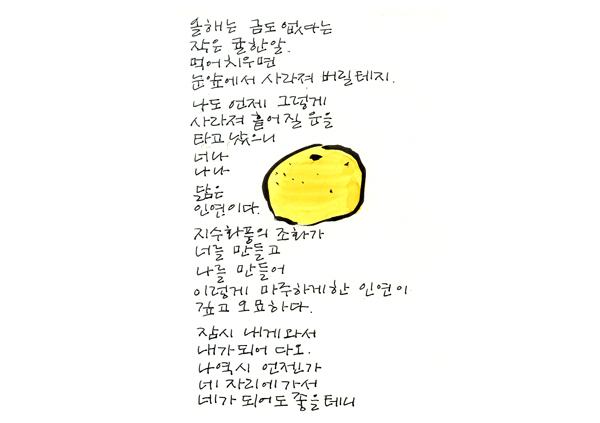 올해는 금도 없다는
작은 귤한알.
먹어치우면
눈앞에서 사라져 버릴테지.
나도 언제 그렇게
사라져 흩어질 운을
타고 났으니
너나
나나
닮은
인연이다.
지수화풍의 조화가
너를 만들고
나를 만들어
이렇게 마주하게한 인연이
깊고 오묘하다.
잠시 내게와서
내가되어 다오.
나역시 언젠가
네 자리에가서
네가 되어도 좋을테니